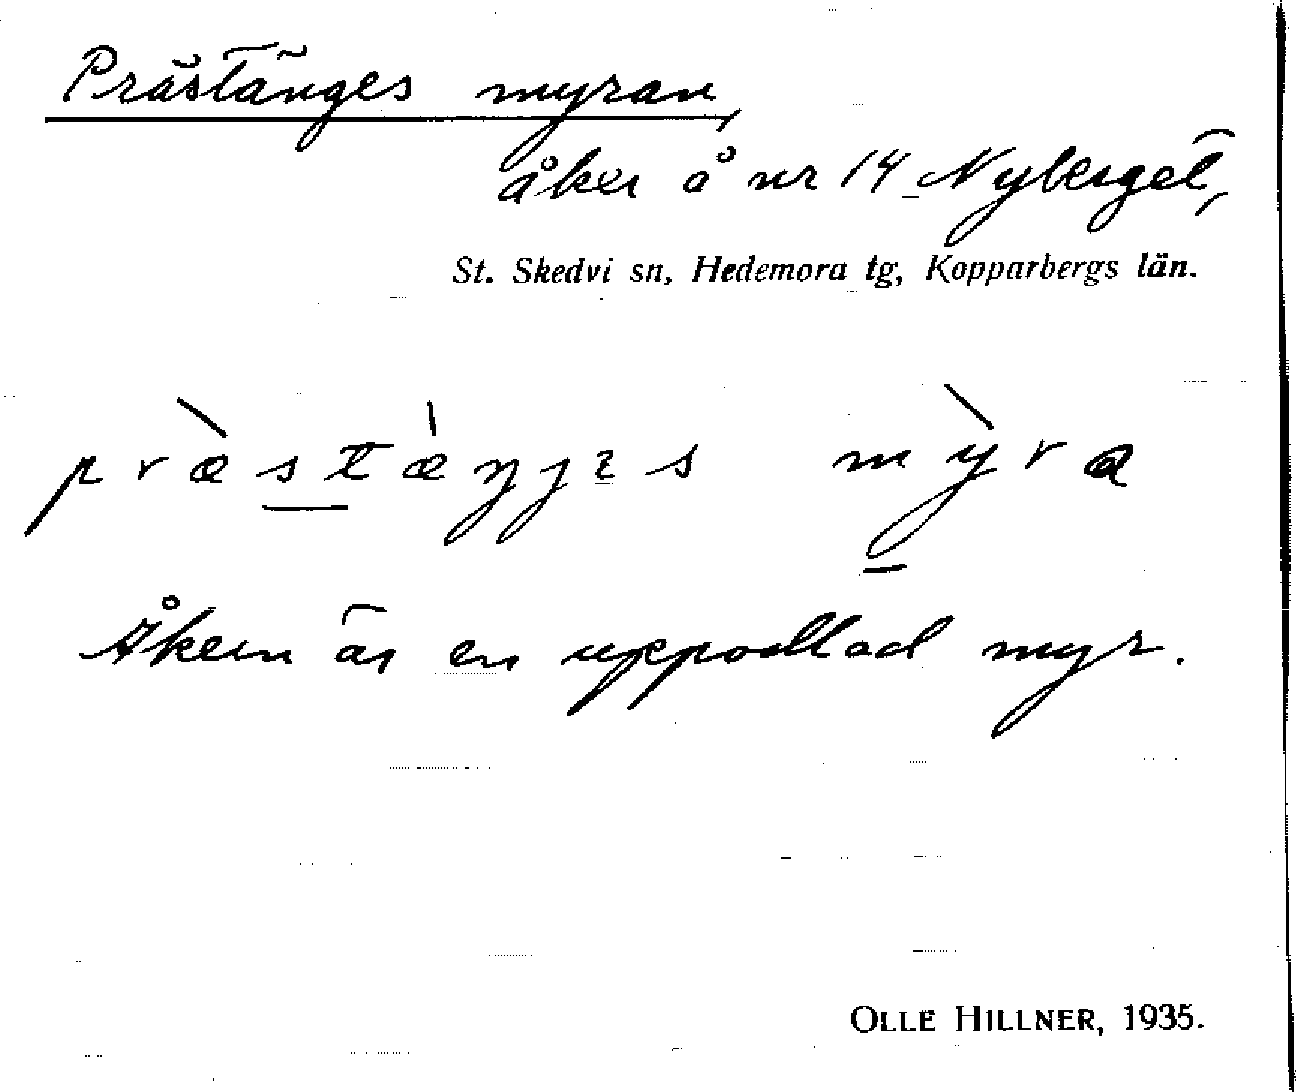 Prästänges myran,
åker å nr 14 Nyberget,
St. Skedvi sn, Hedemora tg, Kopparbergs län.
præ̀stæ̀ŋjɛs mỳra
Åkern är en uppodlad myr.
OLLE HILLNER, 1935.